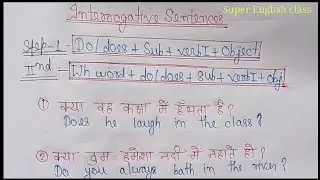 Super English class
Interrogative Sentences
Step-1 - Do/does + Sub + verbI + Object
IInd :- Wh word + do/does + sub + verbI + obj
① क्या वह कक्षा में हँसता है?
Does he laugh in the class?
② क्या तुम हमेशा नदी में नहाते हो?
Do you always bath in the river?